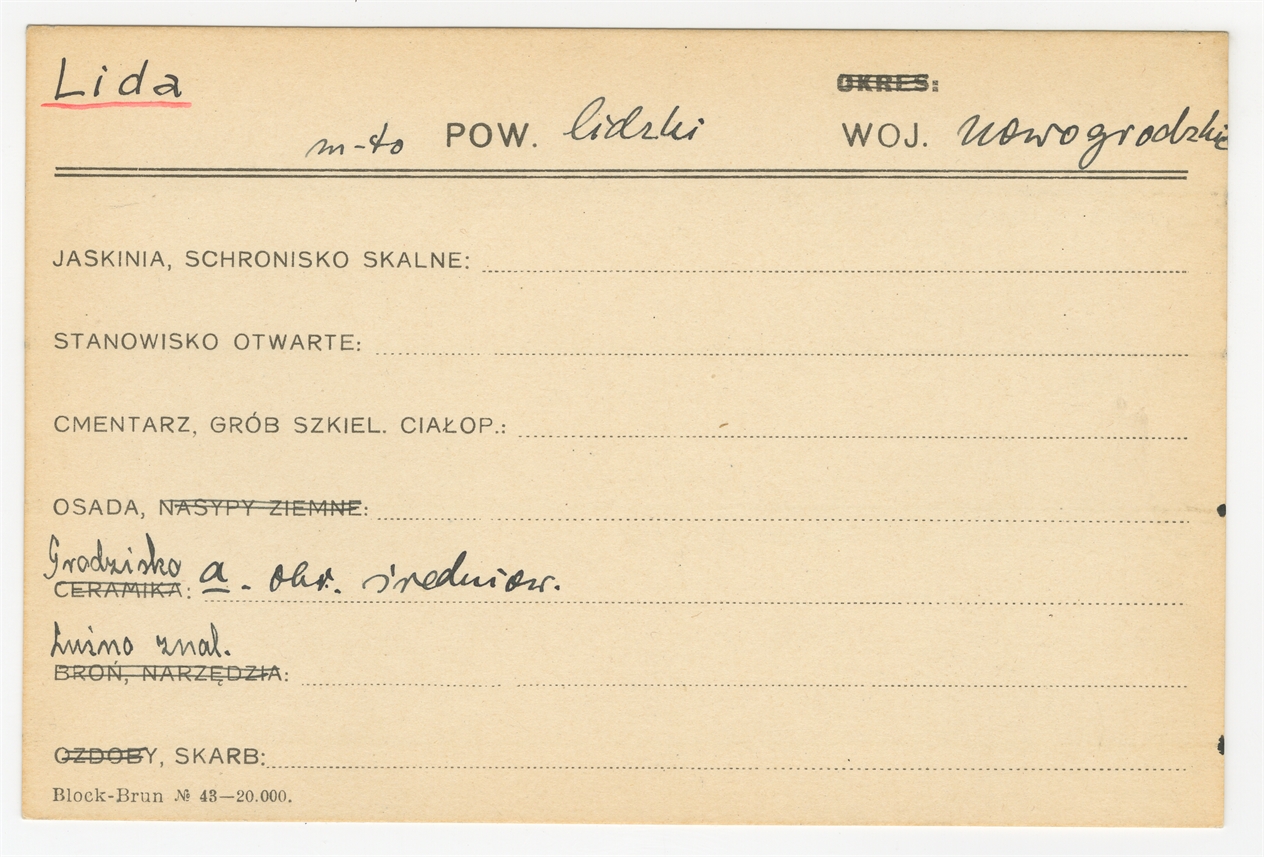 Lida
OKRES:
m-to POW. lidzki WOJ. nowogrodzkie
JASKINIA, SCHRONISKO SKALNE:
STANOWISKO OTWARTE:
CMENTARZ, GRÓB SZKIEL. CIAŁOP.:
OSADA, NASYPY ZIEMNE:
Grodzisko a. okr. średniow.
CERAMIKA:
Luźno znal.
BROŃ, NARZĘDZIA:
OZDOBY, SKARB:
Block-Brun № 43—20.000.